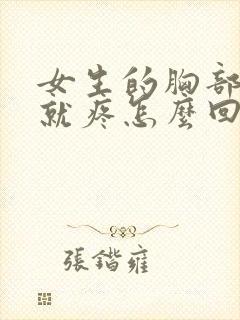 女生的胸部
就疼怎麼回
張鍇雍